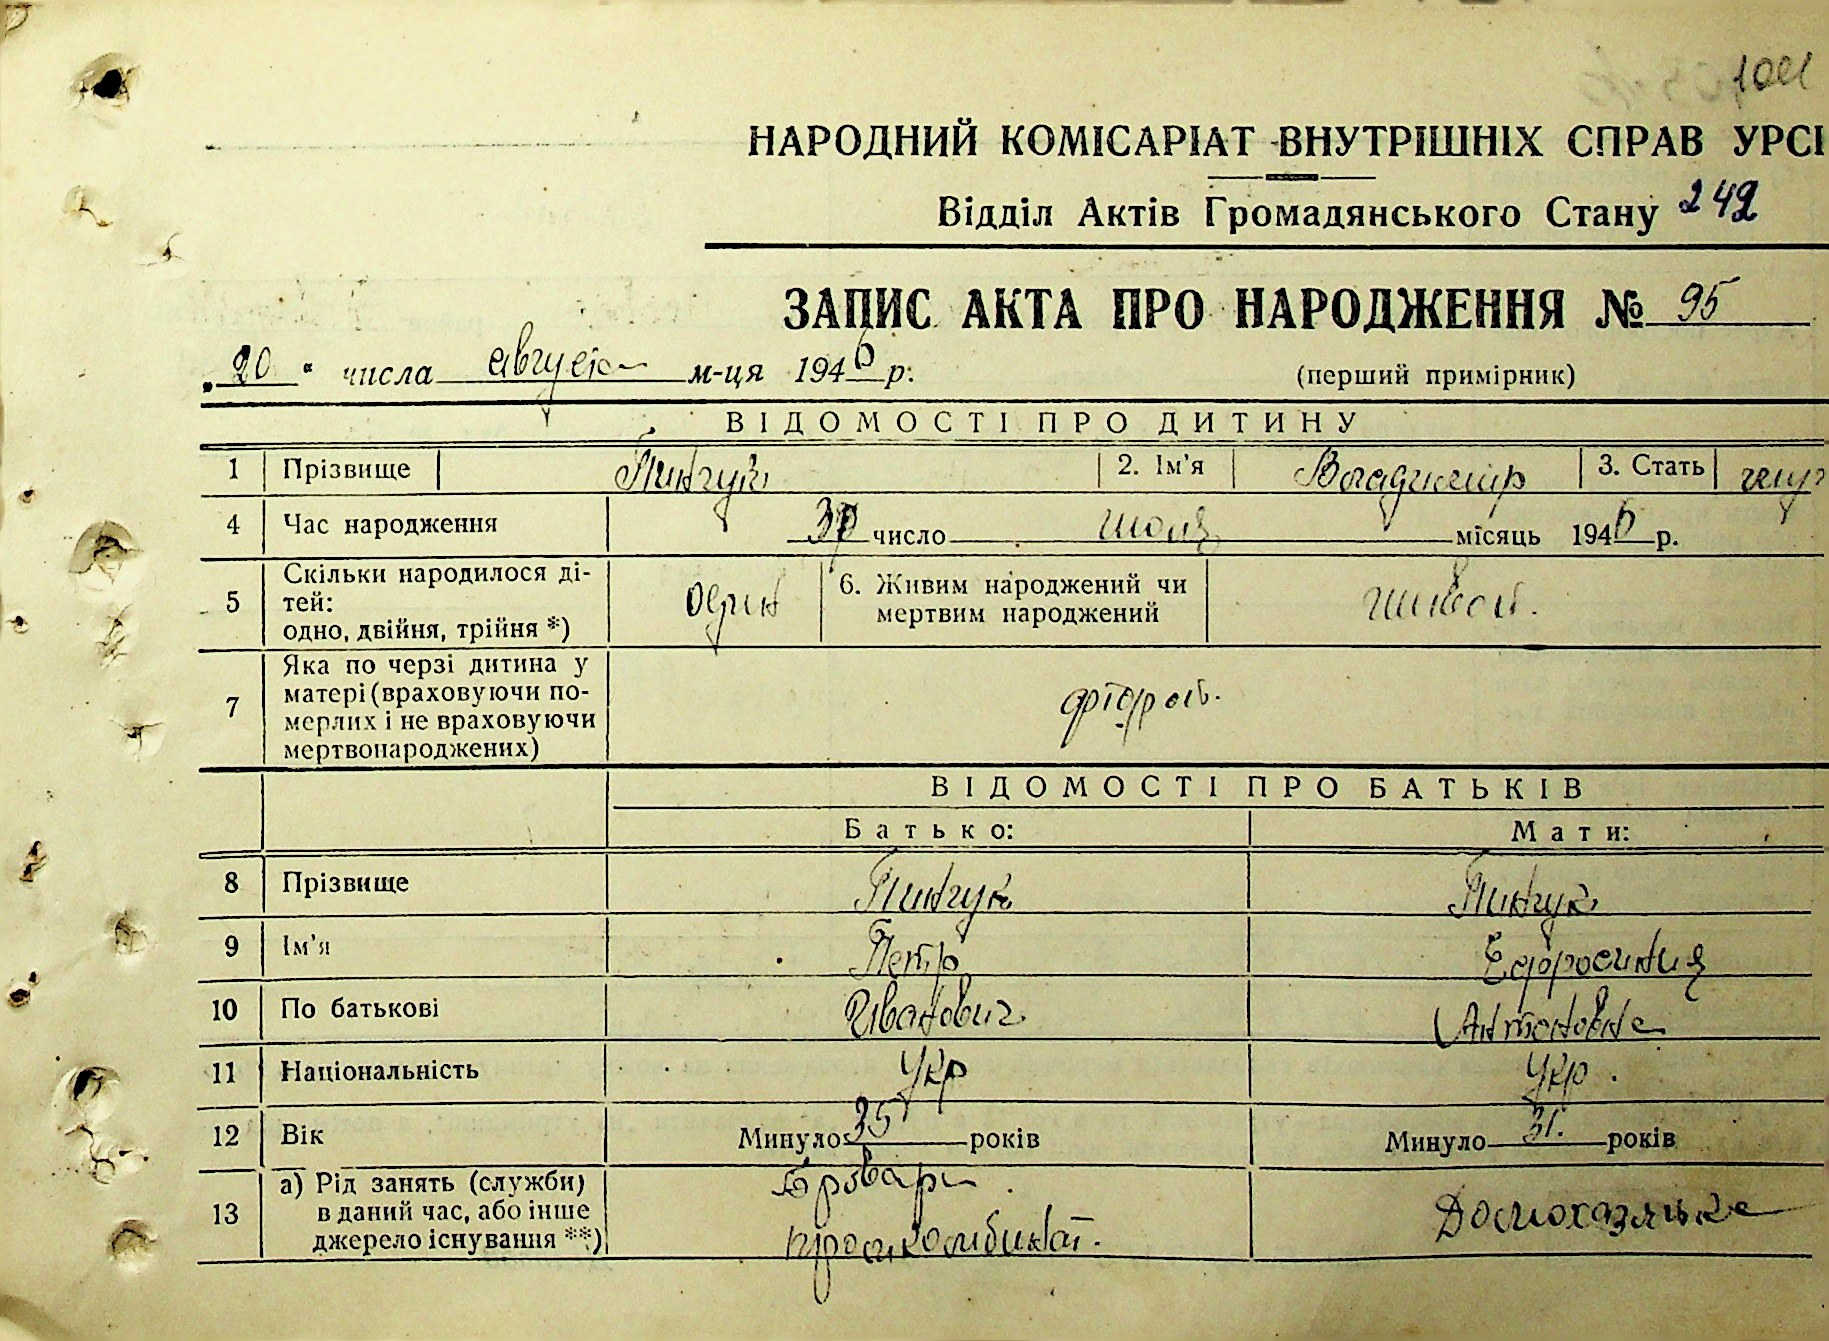 НАРОДНИЙ КОМІСАРІАТ ВНУТРІШНІХ СПРАВ УРСР
Відділ Актів Громадянського Стану 242
ЗАПИС АКТА ПРО НАРОДЖЕННЯ № 95
„20“ числа августа м-ця 1946 р.
(перший примірник)
ВІДОМОСТІ ПРО ДИТИНУ
1 Прізвище Пинчук 2. Ім’я Владимир 3. Стать муж
4 Час народження число июля місяць 1946 р.
5 Скільки народилося ді-
тей:
одно, двійня, трійня *) один
6. Живим народжений чи
мертвим народжений живой.
7 Яка по черзі дитина у
матері (враховуючи по-
мерлих і не враховуючи
мертвонароджених)
ВІДОМОСТІ ПРО БАТЬКІВ
Батько: Мати:
8 Прізвище Пинчук Пинчук
9 Ім’я Петр Ефросиния
10 По батькові Иванович Антоновна
11 Національність Укр Укр.
12 Вік Минуло 35 років Минуло 31. років
13 а) Рід занять (служби)
в даний час, або інше
джерело існування **)
Бровари
промкомбинат.
Домохазяйка